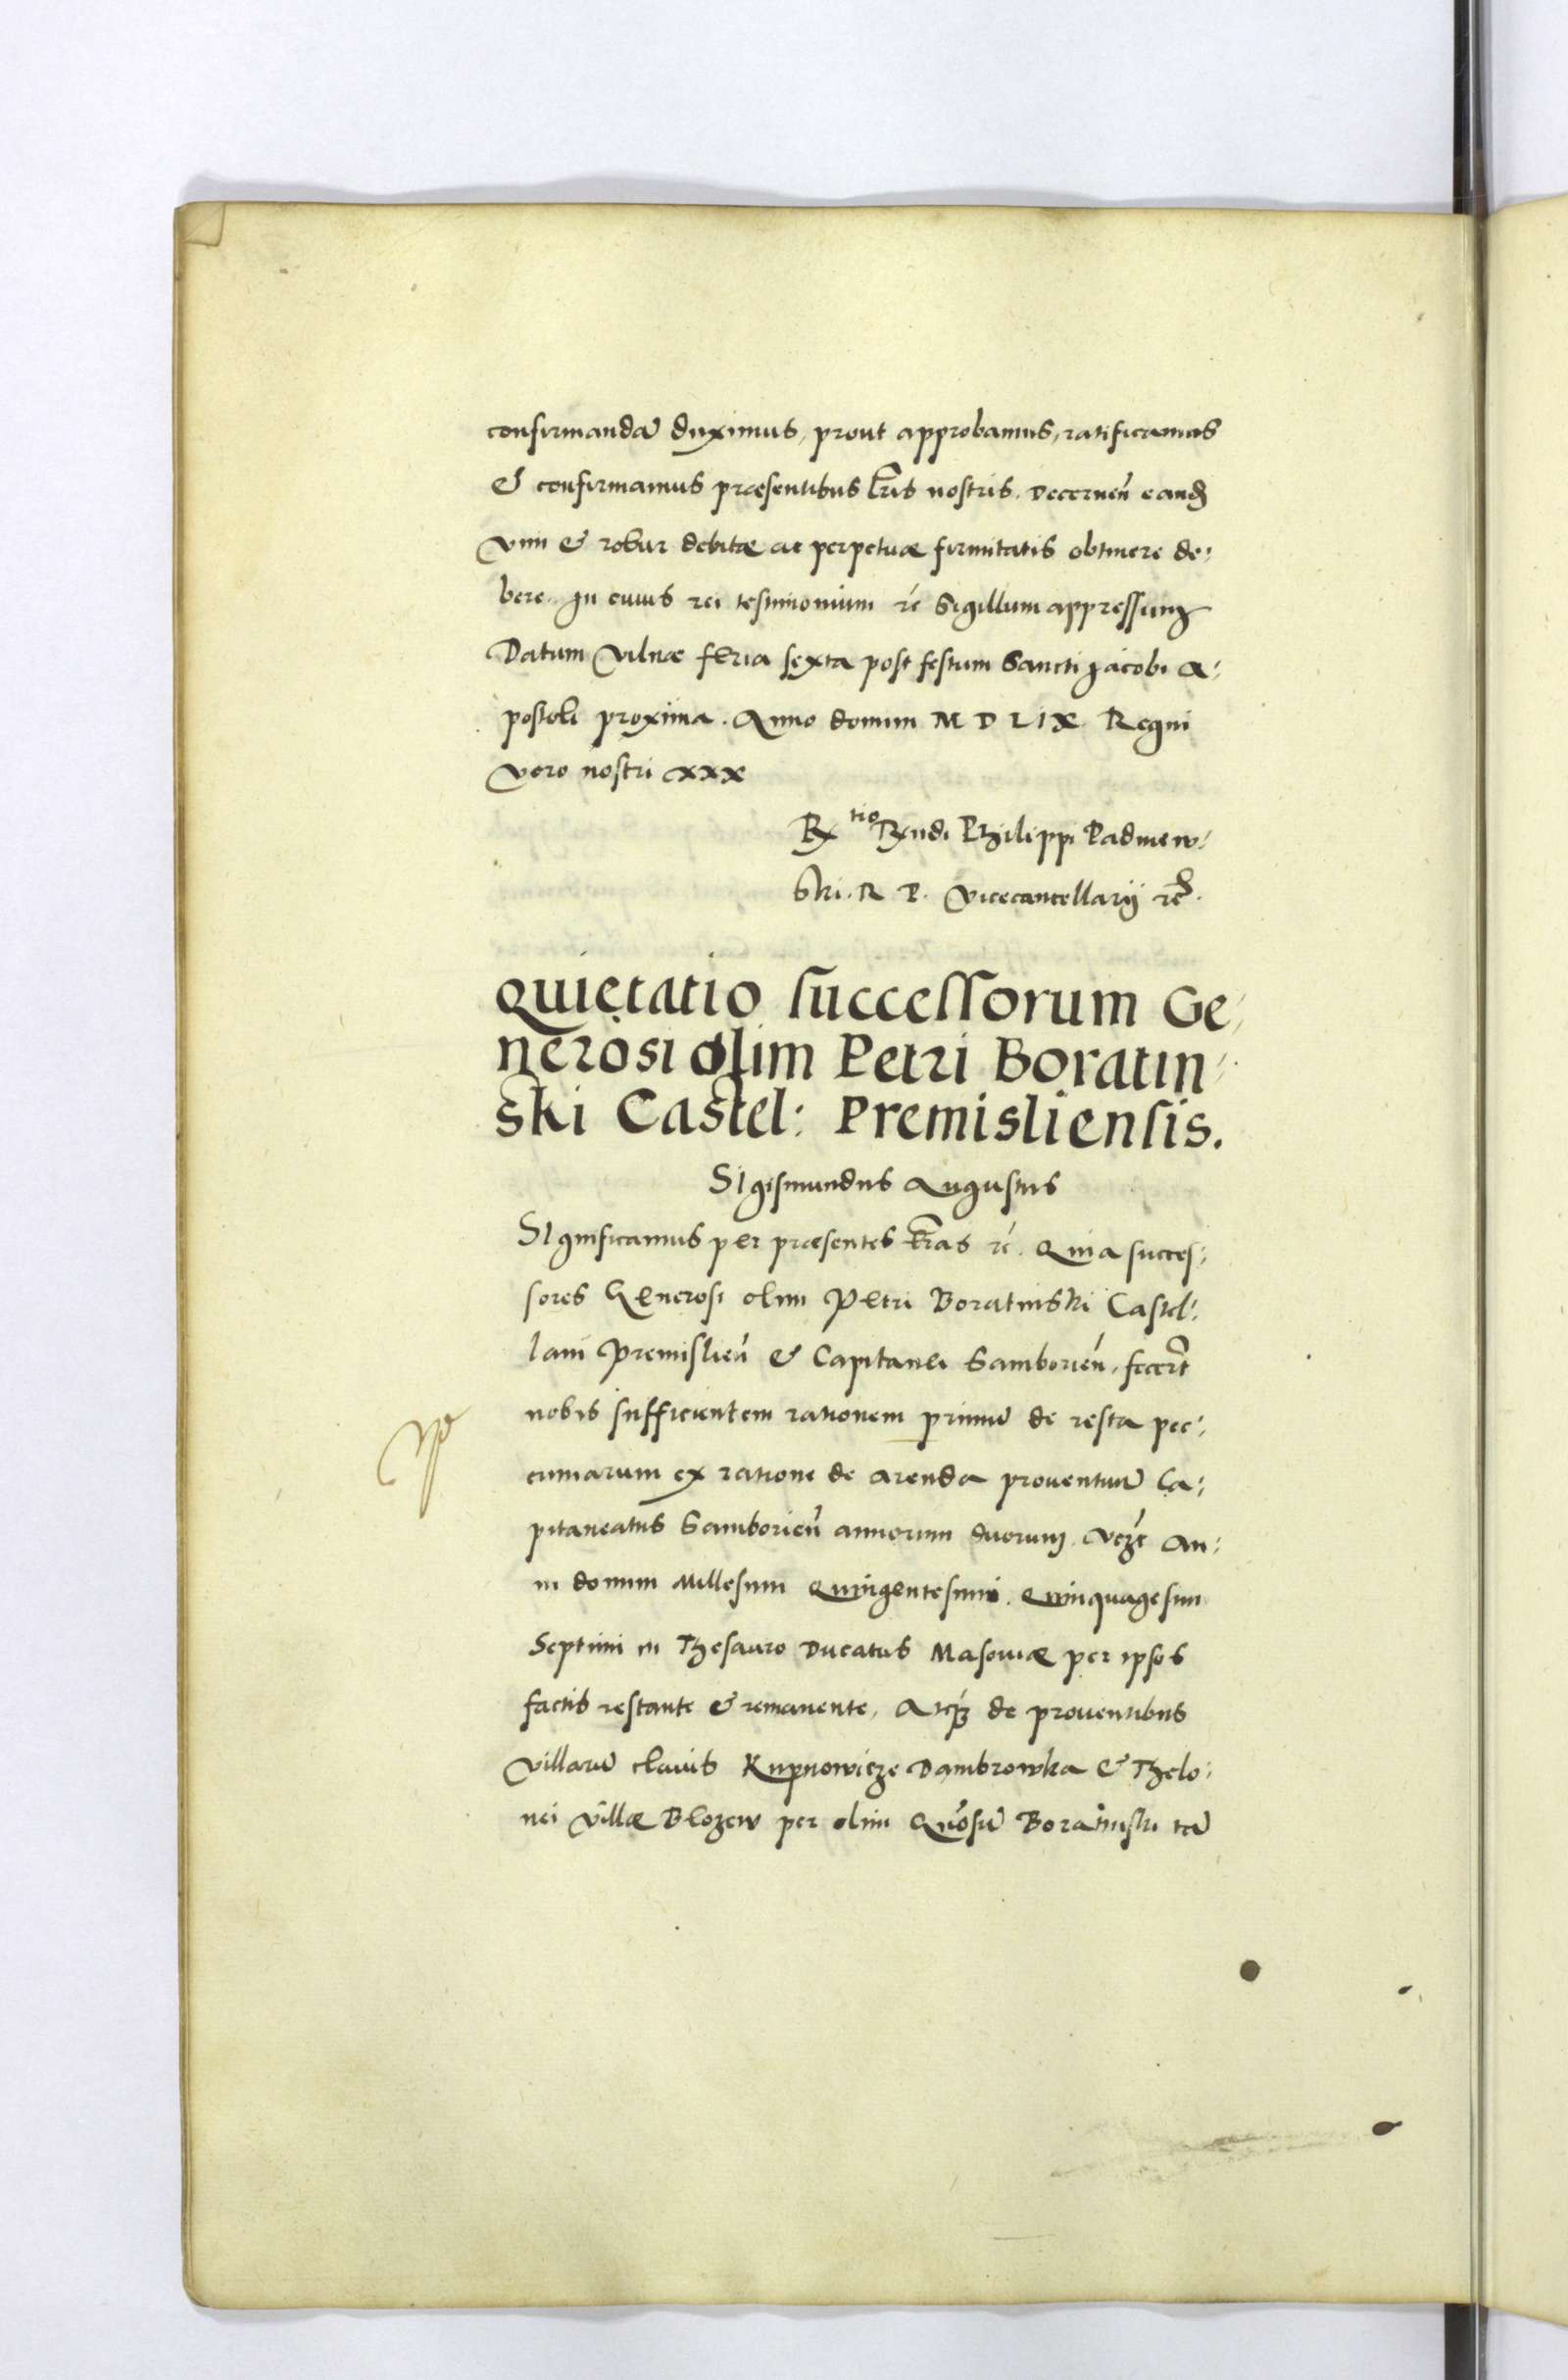 confirmandā duximus, prout approbamus, ratificamus
& confirmamus præsentibus l̃ris nostris. Decerneñ eandẽ
vim & robur debitæ ac perpetuæ firmitatis obtinere de:
bere. In cuius rei testimonium rč Sigillum appressum
Datum Vilnæ feria sexta post festum Sancti Jacobi A:
postoli proxima. Anno domini M D LIX Regni
vero nostri XXX
Rx tio Rxndi Philippi Padniew:
ski. R P. Vicecancellarij rč.
Quietatio successorum Ge:
nerosi olim Petri Boratin:
ski Castel: Premisliensis.
Sigismundus Augustus
Significamus per præsentes l̃ras rč. Quia succes:
sores Generosi olim Petri Boratinski Castel:
lani Premislieñ & Capitanei Samborieñ, fecer̃t
nobis sufficientem rationem primũ de resta pec:
cuniarum ex ratione de arenda prouentuũ Ca:
pitaneatus Samborieñ annorum duorum. Vcz̃t An:
ni domini Millesimi Quingentesimi. Quinquagesimi
Septimi in Thesauro Ducatus Masoviæ per ipsos
factis restante & remanente, Atq́ʒ de prouentibus
Villarũ clauis Kupnowicze Dambrowka & Thelo:
nei Villæ Blozew per olim Gn̄osũ Boratinski tã